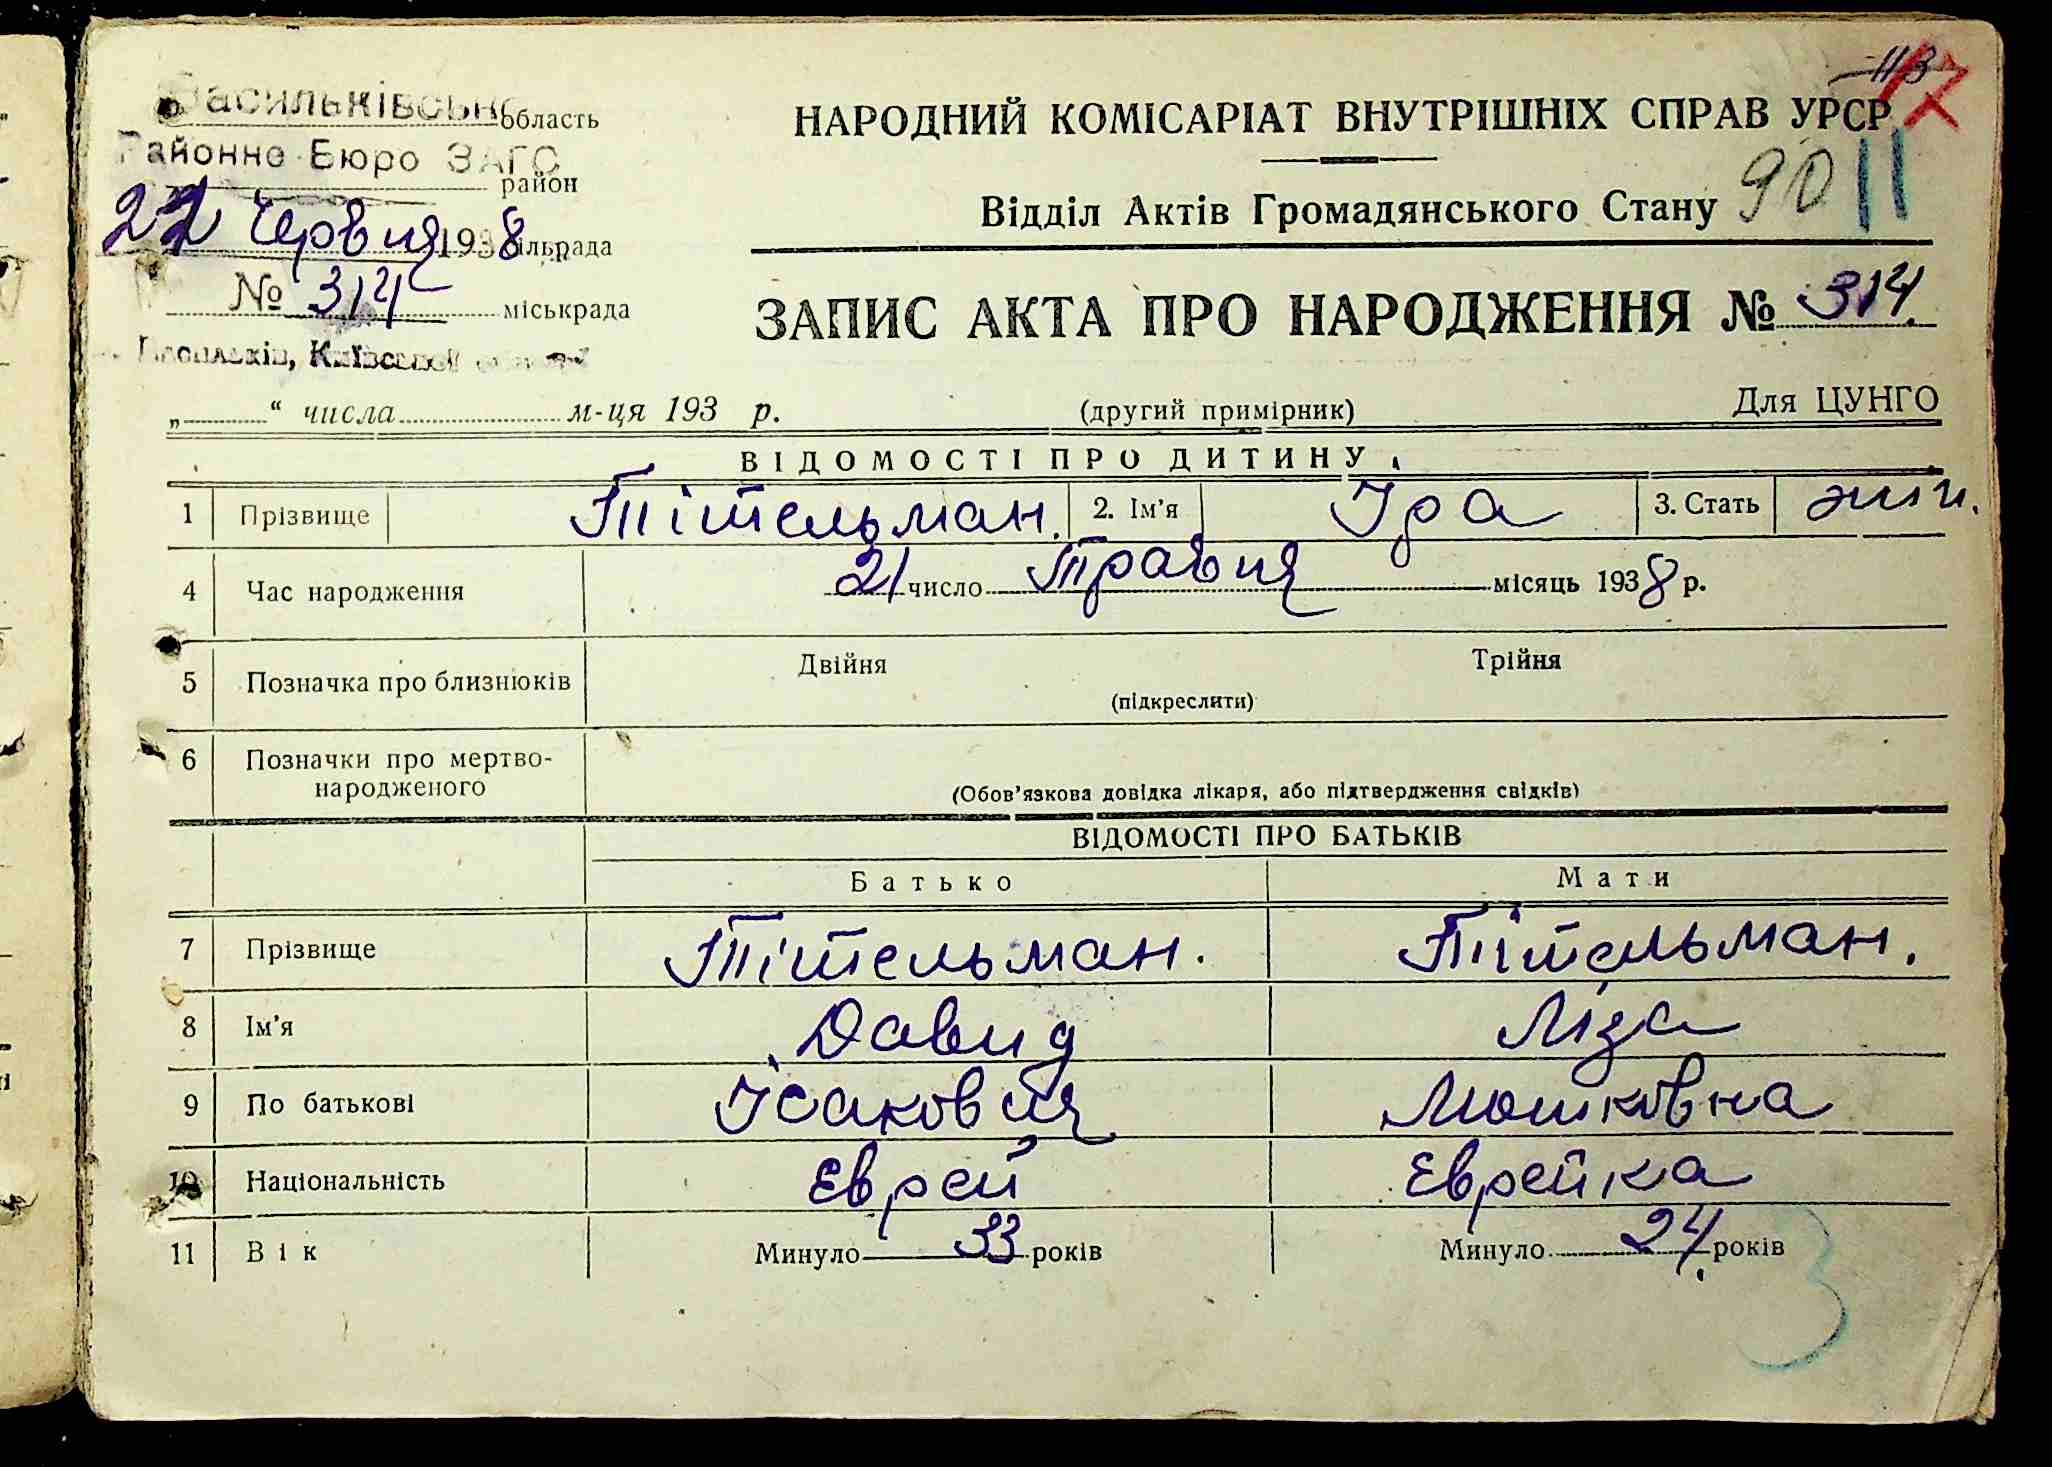 Васильківськ область
Районне Бюро ЗАГС
район
22 Червня 1938 сільрада
№ 314 міськрада
Васильків, Київської
113 17
НАРОДНИЙ КОМІСАРІАТ ВНУТРІШНІХ СПРАВ УРСР
Відділ Актів Громадянського Стану 90 11
ЗАПИС АКТА ПРО НАРОДЖЕННЯ № 314
„ “ числа м-ця 193 р. (другий примірник) Для ЦУНГО
ВІДОМОСТІ ПРО ДИТИНУ
1 Прізвище Тітельман. 2. Ім'я Іра 3. Стать жін.
4 Час народження 21 число Травня місяць 1938 р.
5 Позначка про близнюків Двійня Трійня
(підкреслити)
6 Позначки про мертво-
народженого (Обов'язкова довідка лікаря, або підтвердження свідків)
ВІДОМОСТІ ПРО БАТЬКІВ
Батько Мати
7 Прізвище Тітельман. Тітельман.
8 Ім'я Давид Ліза
9 По батькові Ісакович Мошковна
10 Національність Єврей Єврейка
11 Вік Минуло 33 років Минуло 24 років
3